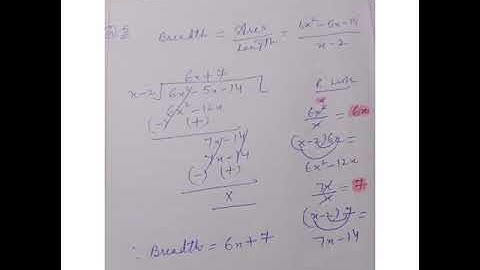 Breadth = Area / Length = 6x² - 5x - 14 / x - 2
6x + 7
x-2 √ 6x² - 5x - 14
6x² - 12x
(-) (+)
7x - 14
7x - 14
(-) (+)
x
∴ Breadth = 6x + 7
R Work
6x² / x = 6x
(x-2) 6x =
6x² - 12x
7x / x = 7
(x-2) 7 =
7x - 14